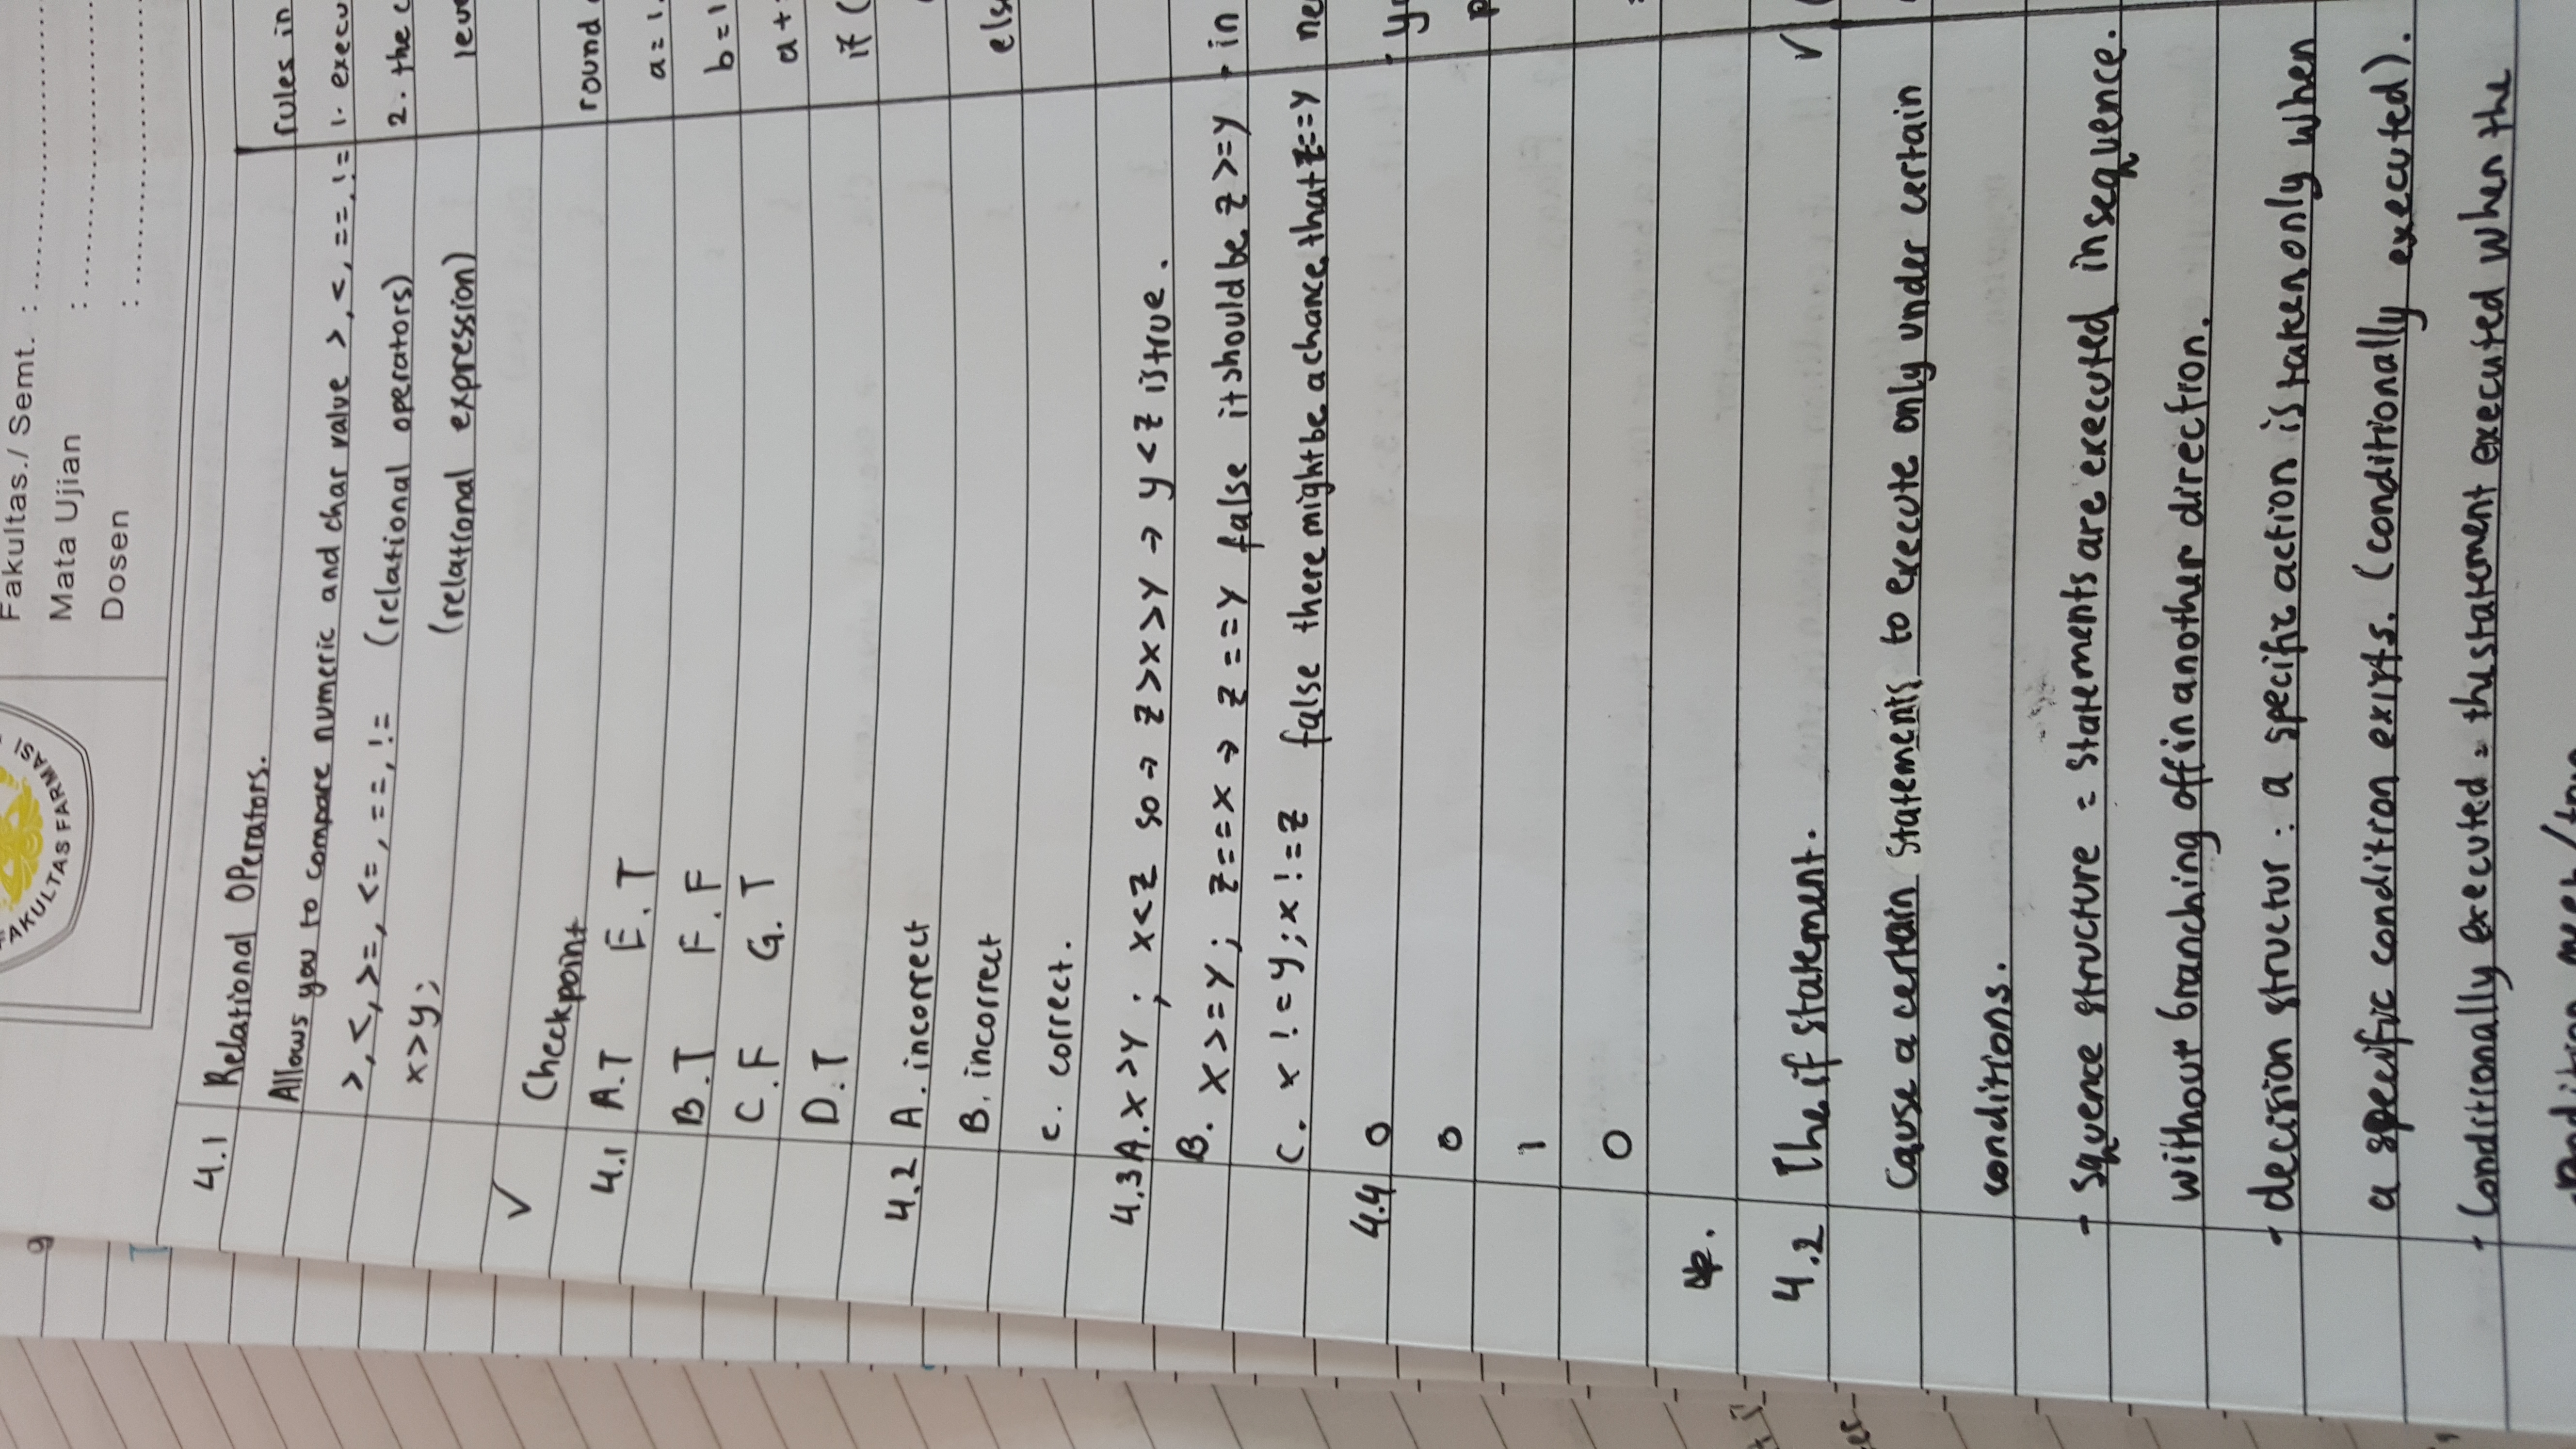 FAKULTAS FARMASI
Fakultas./ Semt. :
Mata Ujian :
Dosen :
9
4.1 Relational Operators.
Allows you to compare numeric and char value >, <, ==, !=
>, <, >=, <=, ==, != (relational operators)
x>y; (relational expression)
✓ Checkpoint
4.1 A. T E. T
B. T F. F
C. F G. T
D. T
4.2 A. incorrect
B. incorrect
C. correct.
4.3 A. X >Y ; X<Z so → Z>X>Y → y<Z is true.
B. X >=Y; Z==X → Z ==Y false it should be Z >=Y
C. x != y; x != Z false there might be a chance that Z==Y
4.4 0
0
1
0
4.2 The if statement.
Cause a certain statements to execute only under certain
conditions.
- squence structure = statements are executed in sequence.
without branching off in another direction.
- decision structur : a specific action is taken only when
a specific condition exists. (conditionally executed).
- Conditionally executed = the statement executed when the
rules in
1.
2. the
round
a= 1.
b=1
a+
if (
in